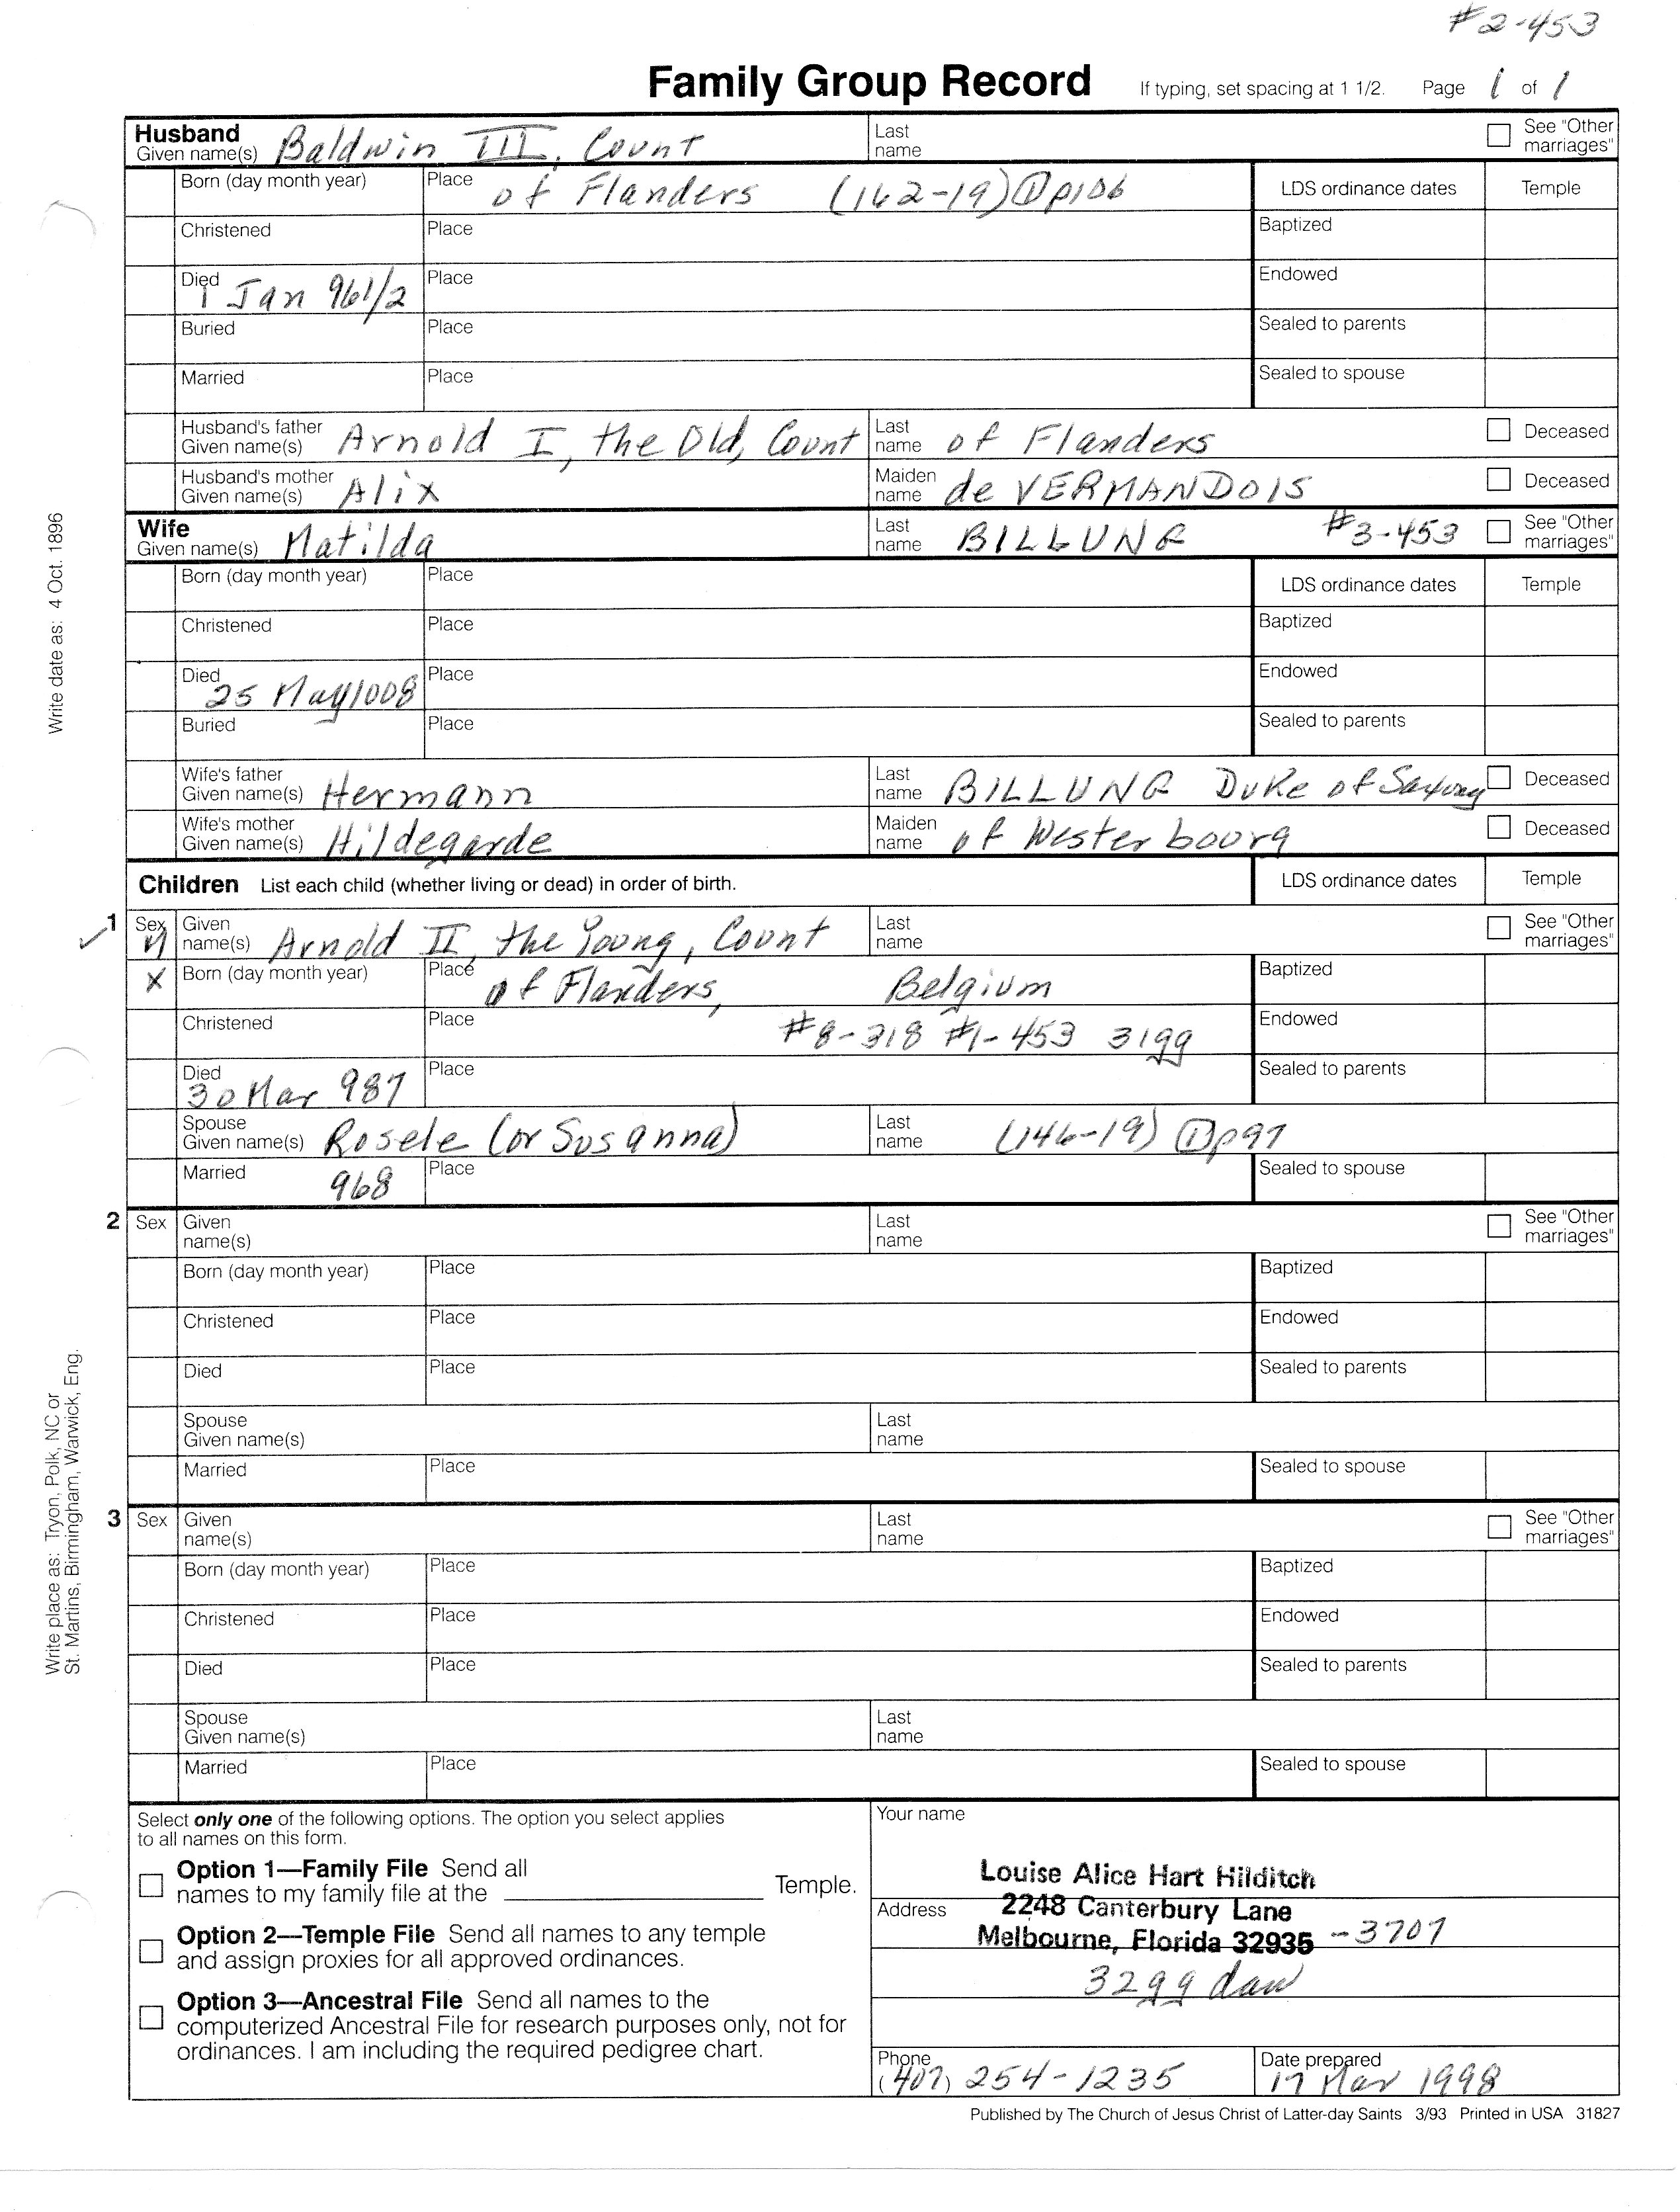 #2-453
Family Group Record If typing, set spacing at 1 1/2. Page 1 of 1
Husband Given name(s) Baldwin III, Count Last name See "Other marriages"
Born (day month year) Place of Flanders (162-19) ① p106 LDS ordinance dates Temple
Christened Place Baptized
Died 1 Jan 961/2 Place Endowed
Buried Place Sealed to parents
Married Place Sealed to spouse
Husband's father Given name(s) Arnold I, the Old, Count Last name of Flanders Deceased
Husband's mother Given name(s) Alix Maiden name de VERMANDOIS Deceased
Wife Given name(s) Matilda Last name BILLUNG #3-453 See "Other marriages"
Born (day month year) Place LDS ordinance dates Temple
Christened Place Baptized
Died 25 May 1008 Place Endowed
Buried Place Sealed to parents
Wife's father Given name(s) Hermann Last name BILLUNG Duke of Saxony Deceased
Wife's mother Given name(s) Hildegarde Maiden name of Westerbourg Deceased
Children List each child (whether living or dead) in order of birth. LDS ordinance dates Temple
1 Sex M Given name(s) Arnold II, the Young, Count Last name See "Other marriages"
X Born (day month year) Place of Flanders, Belgium Baptized
Christened Place #8-318 #1-453 31gg Endowed
Died 30 Mar 987 Place Sealed to parents
Spouse Given name(s) Rosele (or Susanna) Last name (146-19) ① p97
Married 968 Place Sealed to spouse
2 Sex Given name(s) Last name See "Other marriages"
Born (day month year) Place Baptized
Christened Place Endowed
Died Place Sealed to parents
Spouse Given name(s) Last name
Married Place Sealed to spouse
3 Sex Given name(s) Last name See "Other marriages"
Born (day month year) Place Baptized
Christened Place Endowed
Died Place Sealed to parents
Spouse Given name(s) Last name
Married Place Sealed to spouse
Write date as: 4 Oct. 1896
Write place as: Tryon, Polk, NC or
St. Martins, Birmingham, Warwick, Eng.
Select only one of the following options. The option you select applies
to all names on this form.
Option 1—Family File Send all
names to my family file at the Temple.
Option 2—Temple File Send all names to any temple
and assign proxies for all approved ordinances.
Option 3—Ancestral File Send all names to the
computerized Ancestral File for research purposes only, not for
ordinances. I am including the required pedigree chart.
Your name
Louise Alice Hart Hilditch
Address 2248 Canterbury Lane
Melbourne, Florida 32935 -3707
32gg dau
Phone (407) 254-1235 Date prepared 17 Mar 1998
Published by The Church of Jesus Christ of Latter-day Saints 3/93 Printed in USA 31827